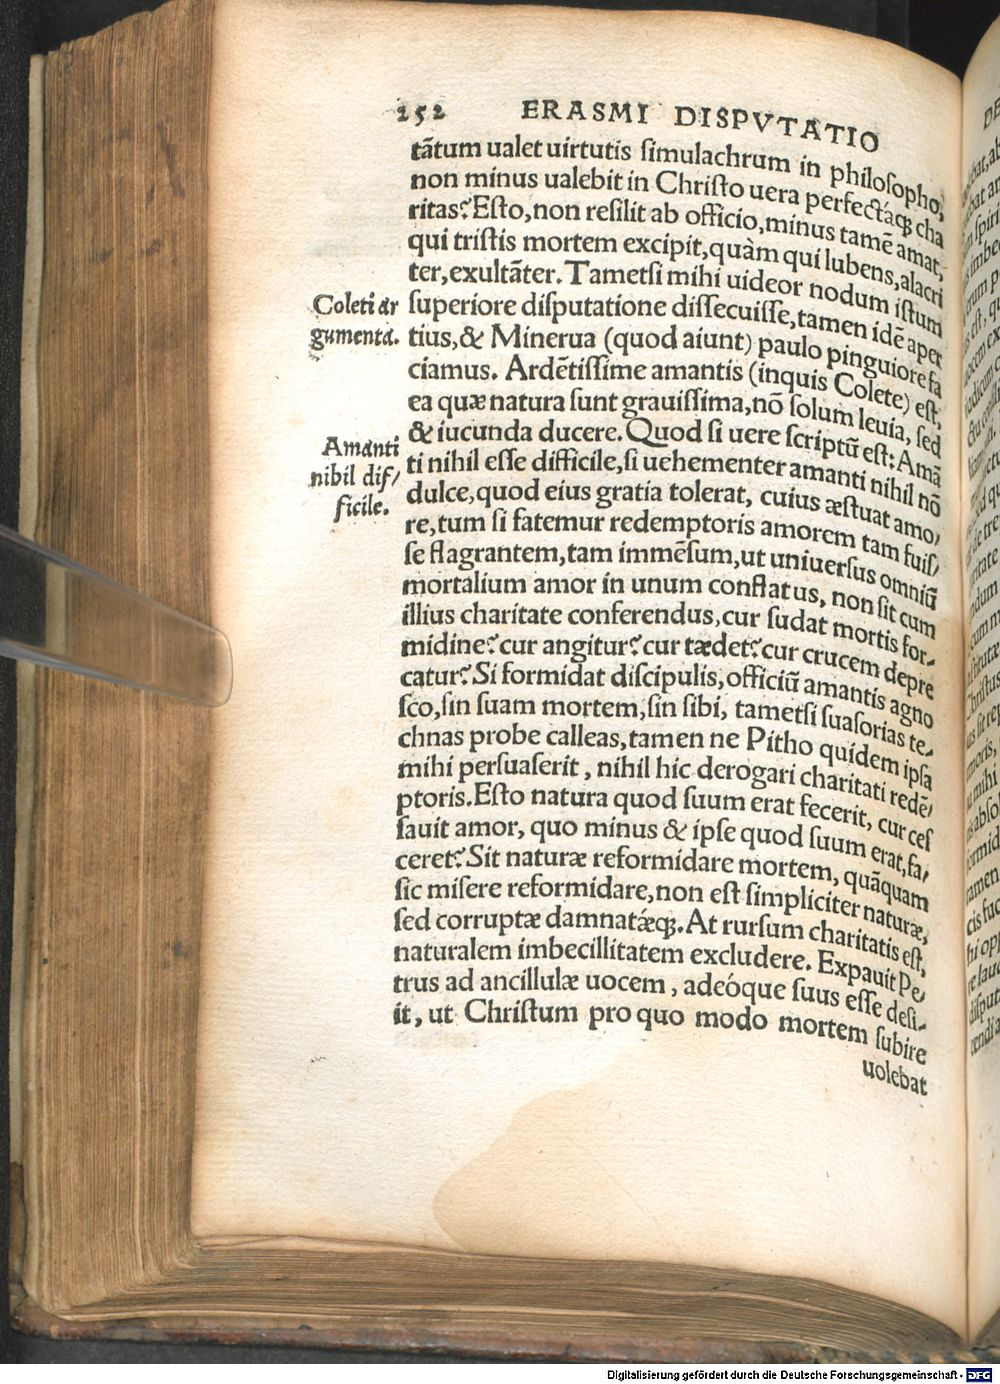 252 ERASMI DISPVTATIO
tātum ualet uirtutis simulachrum in philosopho,
non minus ualebit in Christo uera perfectáq́ꝫ cha
ritas? Esto, non resilit ab officio, minus tamē amat,
qui tristis mortem excipit, quàm qui lubens, alacri
ter, exultāter. Tametsi mihi uideor nodum istum
Coleti ar
gumenta.
superiore disputatione dissecuisse, tamen idē aper
tius, & Minerua (quod aiunt) paulo pinguiore fa
ciamus. Ardētissime amantis (inquis Colete) est,
ea quæ natura sunt grauissima, nō solum leuia, sed
& iucunda ducere. Quod si uere scriptū est: Amā
Amanti
nihil dif/
ficile.
ti nihil esse difficile, si uehementer amanti nihil nō
dulce, quod eius gratia tolerat, cuius æstuat amo/
re, tum si fatemur redemptoris amorem tam fuis/
se flagrantem, tam immēsum, ut uniuersus omniū
mortalium amor in unum conflatus, non sit cum
illius charitate conferendus, cur sudat mortis for-
midine? cur angitur? cur tædet? cur crucem depre
catur? Si formidat discipulis, officiū amantis agno
sco, sin suam mortem, sin sibi, tametsi suasorias te-
chnas probe calleas, tamen ne Pitho quidem ipsa
mihi persuaserit, nihil hic derogari charitati redē/
ptoris. Esto natura quod suum erat fecerit, cur ces
sauit amor, quo minus & ipse quod suum erat, fa/
ceret? Sit naturæ reformidare mortem, quāquam
sic misere reformidare, non est simpliciter naturæ,
sed corruptæ damnatǽq́ꝫ. At rursum charitatis est,
naturalem imbecillitatem excludere. Expauit Pe/
trus ad ancillulæ uocem, adeóque suus esse desi-
it, ut Christum pro quo modo mortem subire
uolebat
Digitalisierung gefördert durch die Deutsche Forschungsgemeinschaft - DFG